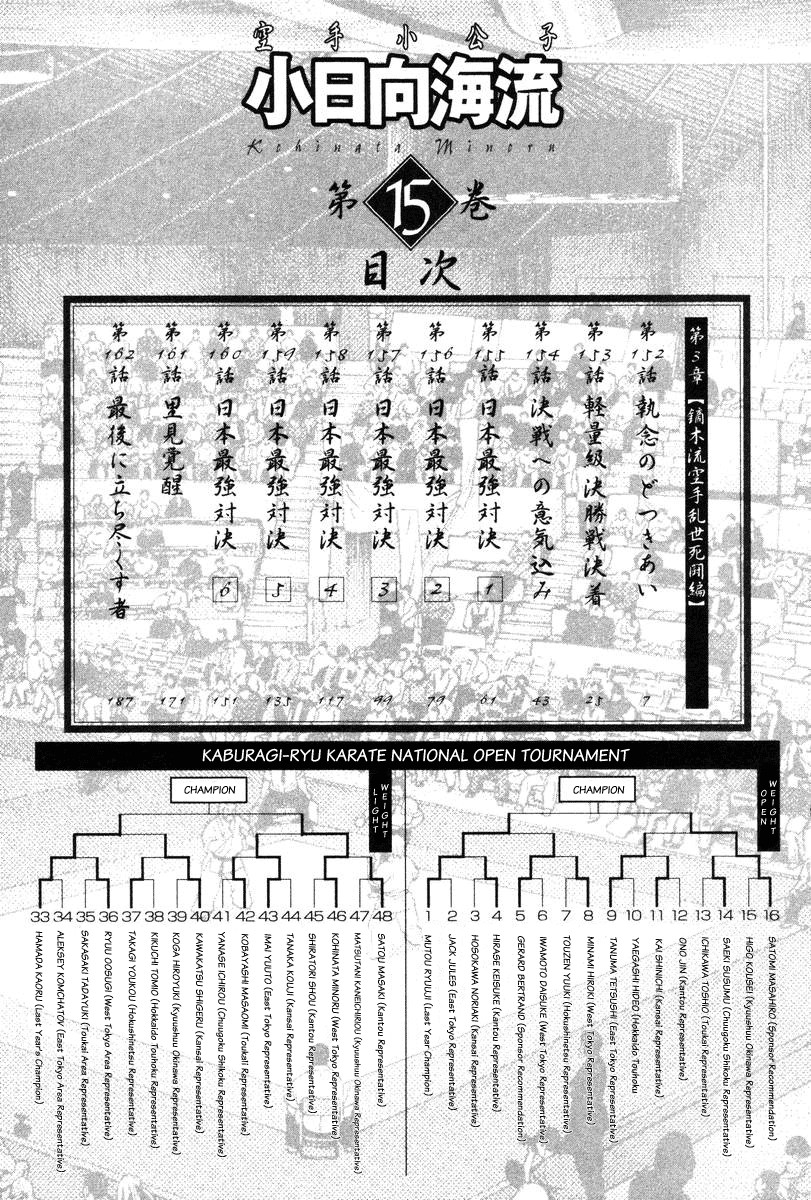 空手小公子
小日向海流
Kohinata Minoru
第15巻
目次
第3章【鏑木流空手乱世死闘編】
第152話 執念のどつきあい 7
第153話 軽量級決勝戦決着 25
第154話 決戦への意気込み 43
第155話 日本最強対決 1 61
第156話 日本最強対決 2 79
第157話 日本最強対決 3 99
第158話 日本最強対決 4 117
第159話 日本最強対決 5 135
第160話 日本最強対決 6 151
第161話 里見覚醒 171
第162話 最後に立ち尽くす者 187
KABURAGI-RYU KARATE NATIONAL OPEN TOURNAMENT
CHAMPION
LIGHT WEIGHT
33 HAMADA KAORU (Last Year's Champion)
34 ALEKSEY KOMCHATOV (East Tokyo Area Representative)
35 SAKASAKI TADAYUKI (Toukai Area Representative)
36 RYUU OOSUGI (West Tokyo Area Representative)
37 TAKAGI YOUKOU (Hokushinetsu Representative)
38 KIKUCHI TOMIO (Hokkaido Touhoku Representative)
39 KOGA HIROYUKI (Kyuushuu Okinawa Representative)
40 KAWAKATSU SHIGERU (Kansai Representative)
41 YANASE ICHIROU (Chuugoku Shikoku Representative)
42 KOBAYASHI MASAOMI (Toukai Representative)
43 IMAI YUUTO (East Tokyo Representative)
44 TANAKA KOUJI (Kansai Representative)
45 SHIRATORI SHOU (Kantou Representative)
46 KOHINATA MINORU (West Tokyo Representative)
47 MATSUTANI KANEICHIROU (Kyuushuu Okinawa Representative)
48 SATOU MASAKI (Kantou Representative)
CHAMPION
OPEN WEIGHT
1 MUTOU RYUUJI (Last Year Champion)
2 JACK JULES (East Tokyo Representative)
3 HOSOKAWA NORIAKI (Kansai Representative)
4 HIRASE KEISUKE (Kantou Representative)
5 GERARD BERTRAND (Sponsor Recommendation)
6 IWAMOTO DAISUKE (West Tokyo Representative)
7 TOUZEN YUUKI (Hokushinetsu Representative)
8 MINAMI HIROKI (West Tokyo Representative)
9 TANUMA TETSUSHI (East Tokyo Representative)
10 YAEGASHI HIDEO (Hokkaido Touhoku
11 KAI SHINICHI (Kansai Representative)
12 ONO JIN (Kantou Representative)
13 ICHIKAWA TOSHIO (Toukai Representative)
14 SAEKI SUSUMU (Chuugoku Shikoku Representative)
15 HIGO KOUSEI (Kyuushuu Okinawa Representative)
16 SATOMI MASAHIRO (Sponsor Recommendation)